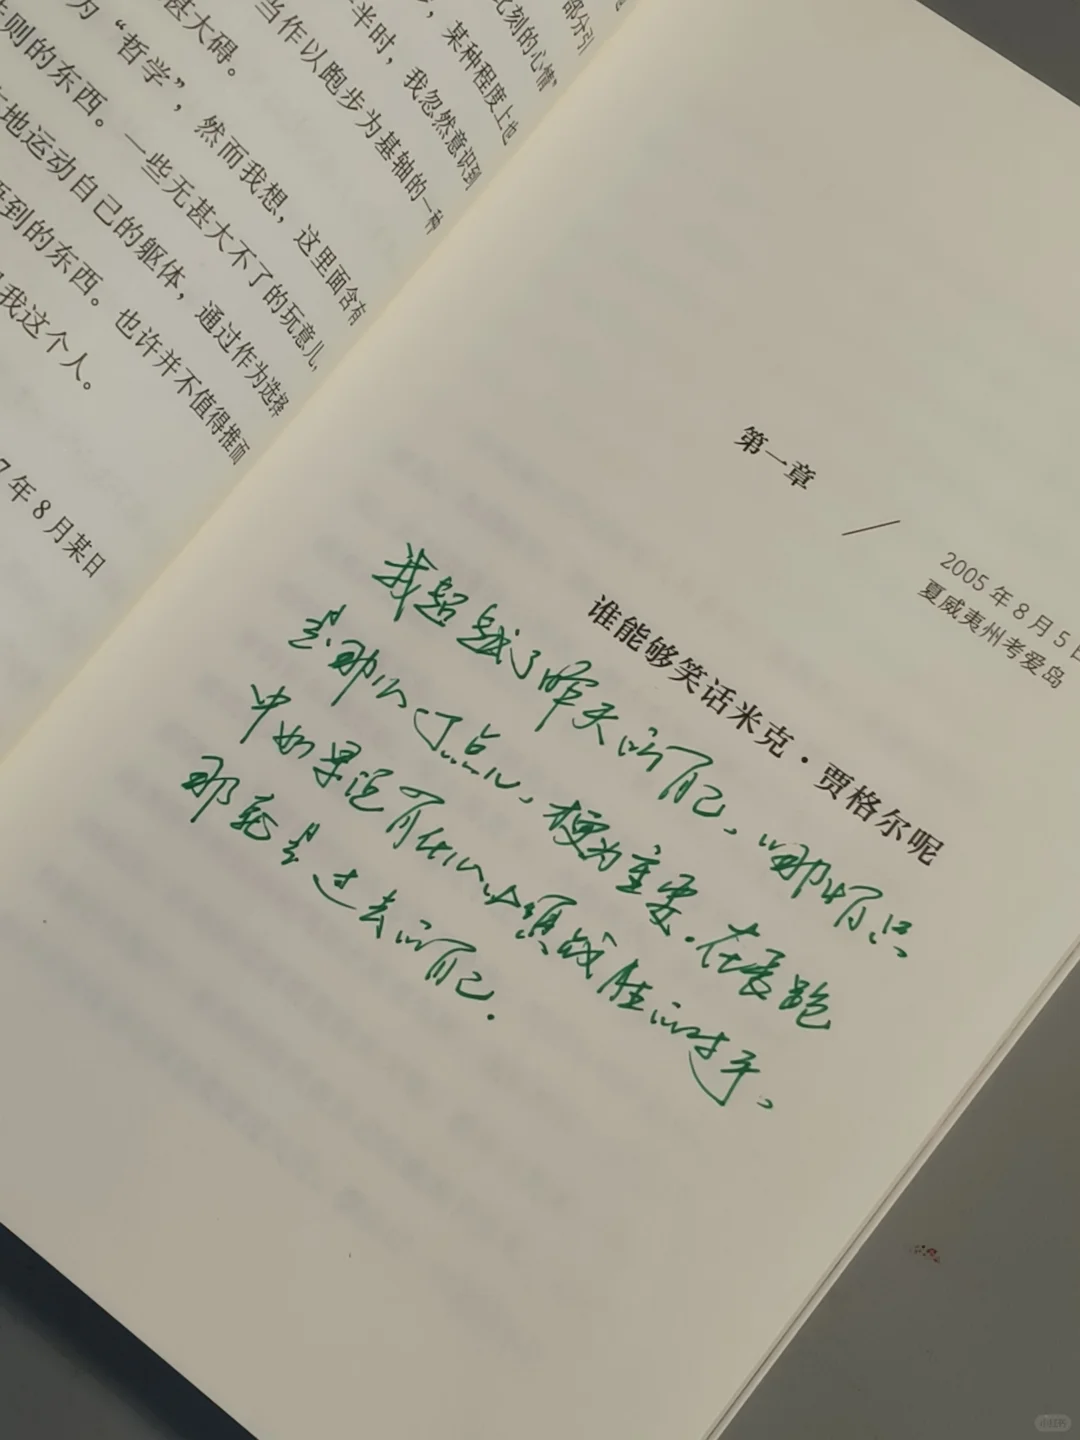 部分引
此刻的心情
，某种程度上也
半时，我忽然意识到
当作以跑步为基轴的一种
甚大碍。
为“哲学”，然而我想，这里面含有
则的东西。一些无甚大不了的玩意儿，
地运动自己的躯体，通过作为选择
到的东西。也许并不值得推而
我这个人。
7年8月某日
第一章
2005年8月5日
夏威夷州考爱岛
谁能够笑话米克·贾格尔呢
我超越了昨天的自己，哪怕只
是那么一丁点儿，才更为重要。在长跑
中如果说有什么必须战胜的对手，
那就是过去的自己。